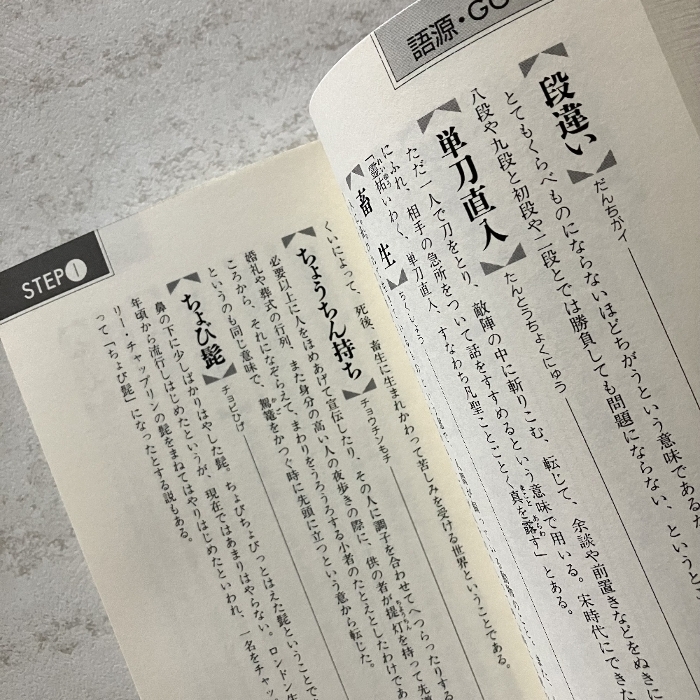 語源・GO
段違い
だんちガイ
とてもくらべものにならないほどちがうという意味であるが
八段や九段と初段や二段とでは勝負しても問題にならない、というと
単刀直入
たんとうちょくにゅう
ただ一人で刀をとり、敵陣の中に斬りこむ、転じて、余談や前置きなどをぬきに
にふれ、相手の急所をついて話をすすめるという意味で用いる。宋時代にでき
「霊祐いわく、単刀直入、すなわち凡聖ことごとく真を露す」とある。
畜生
くいによって、死後、畜生に生まれかわって苦しみを受ける世界ということである。
ちょうちん持ち
チョウチンモチ
必要以上に人をほめあげて宣伝したり、その人に調子を合わせてへつらったりする
婚礼や葬式の行列、また身分の高い人の夜歩きの際に、供の者が提灯を持って先導
ころから、それになぞらえて、まわりをうろうろする小者のたとえとしたわけであ
というのも同じ意味で、駕籠をかつぐ時に先頭に立つという意から転じた。
ちょび髭
チョビひげ
鼻の下に少しばかりはやした髭。ちょびちょびっとはえた髭ということで
年頃から流行しはじめたというが、現在ではあまりはやらない。ロンドン生
リー・チャップリンの髭をまねてはやりはじめたといわれ、一名をチャッ
って「ちょび髭」になったとする説もある。
STEP1